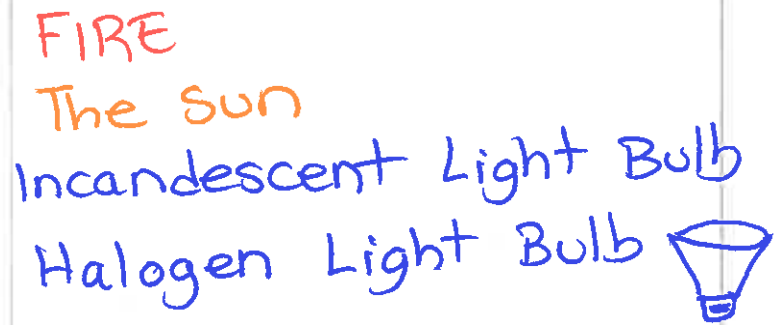 FIRE
The Sun
Incandescent Light Bulb
Halogen Light Bulb